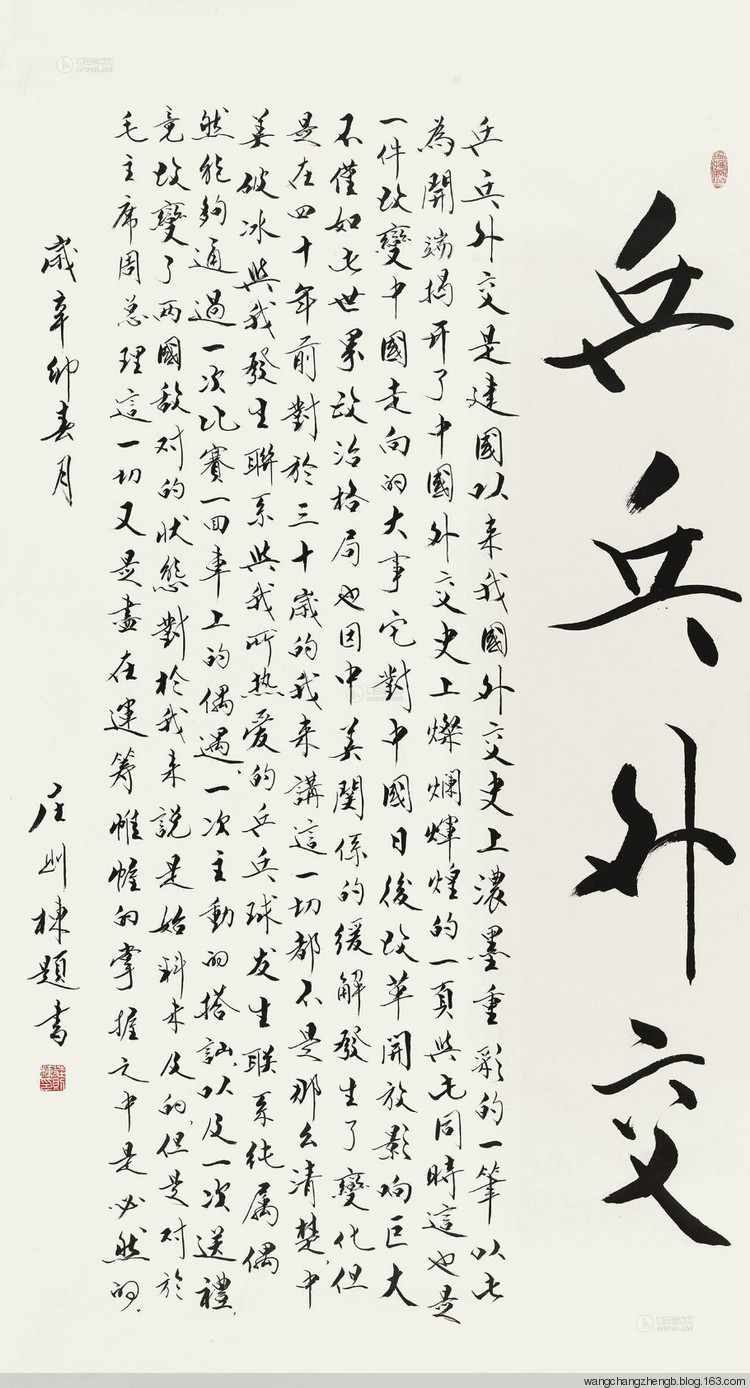 乒乓外交
乒乓外交是建國以来我國外交史上濃墨重彩的一筆以此
為開端揭开了中國外交史上燦爛煇煌的一頁與此同時這也是
一件改變中國走向的大事它對中國日後改革開放影响巨大
不僅如此世界政治格局也因中美関係的緩解發生了變化但
是在四十年前對於三十歲的我来講這一切都不是那么清楚,中
美破冰與我發生聯系與我所热爱的乒乓球发生联系纯属偶
然能夠通過一次比賽一回車上的偶遇,一次主動的搭訕,以及一次送禮,
竟改變了两國敌对的状態對於我来説是始料未及的,但是对於
毛主席周总理這一切又是盡在運筹帷幄的掌握之中是必然的,
歲辛卯春月
庄则棟題書
wangchangzhengb.blog.163.com